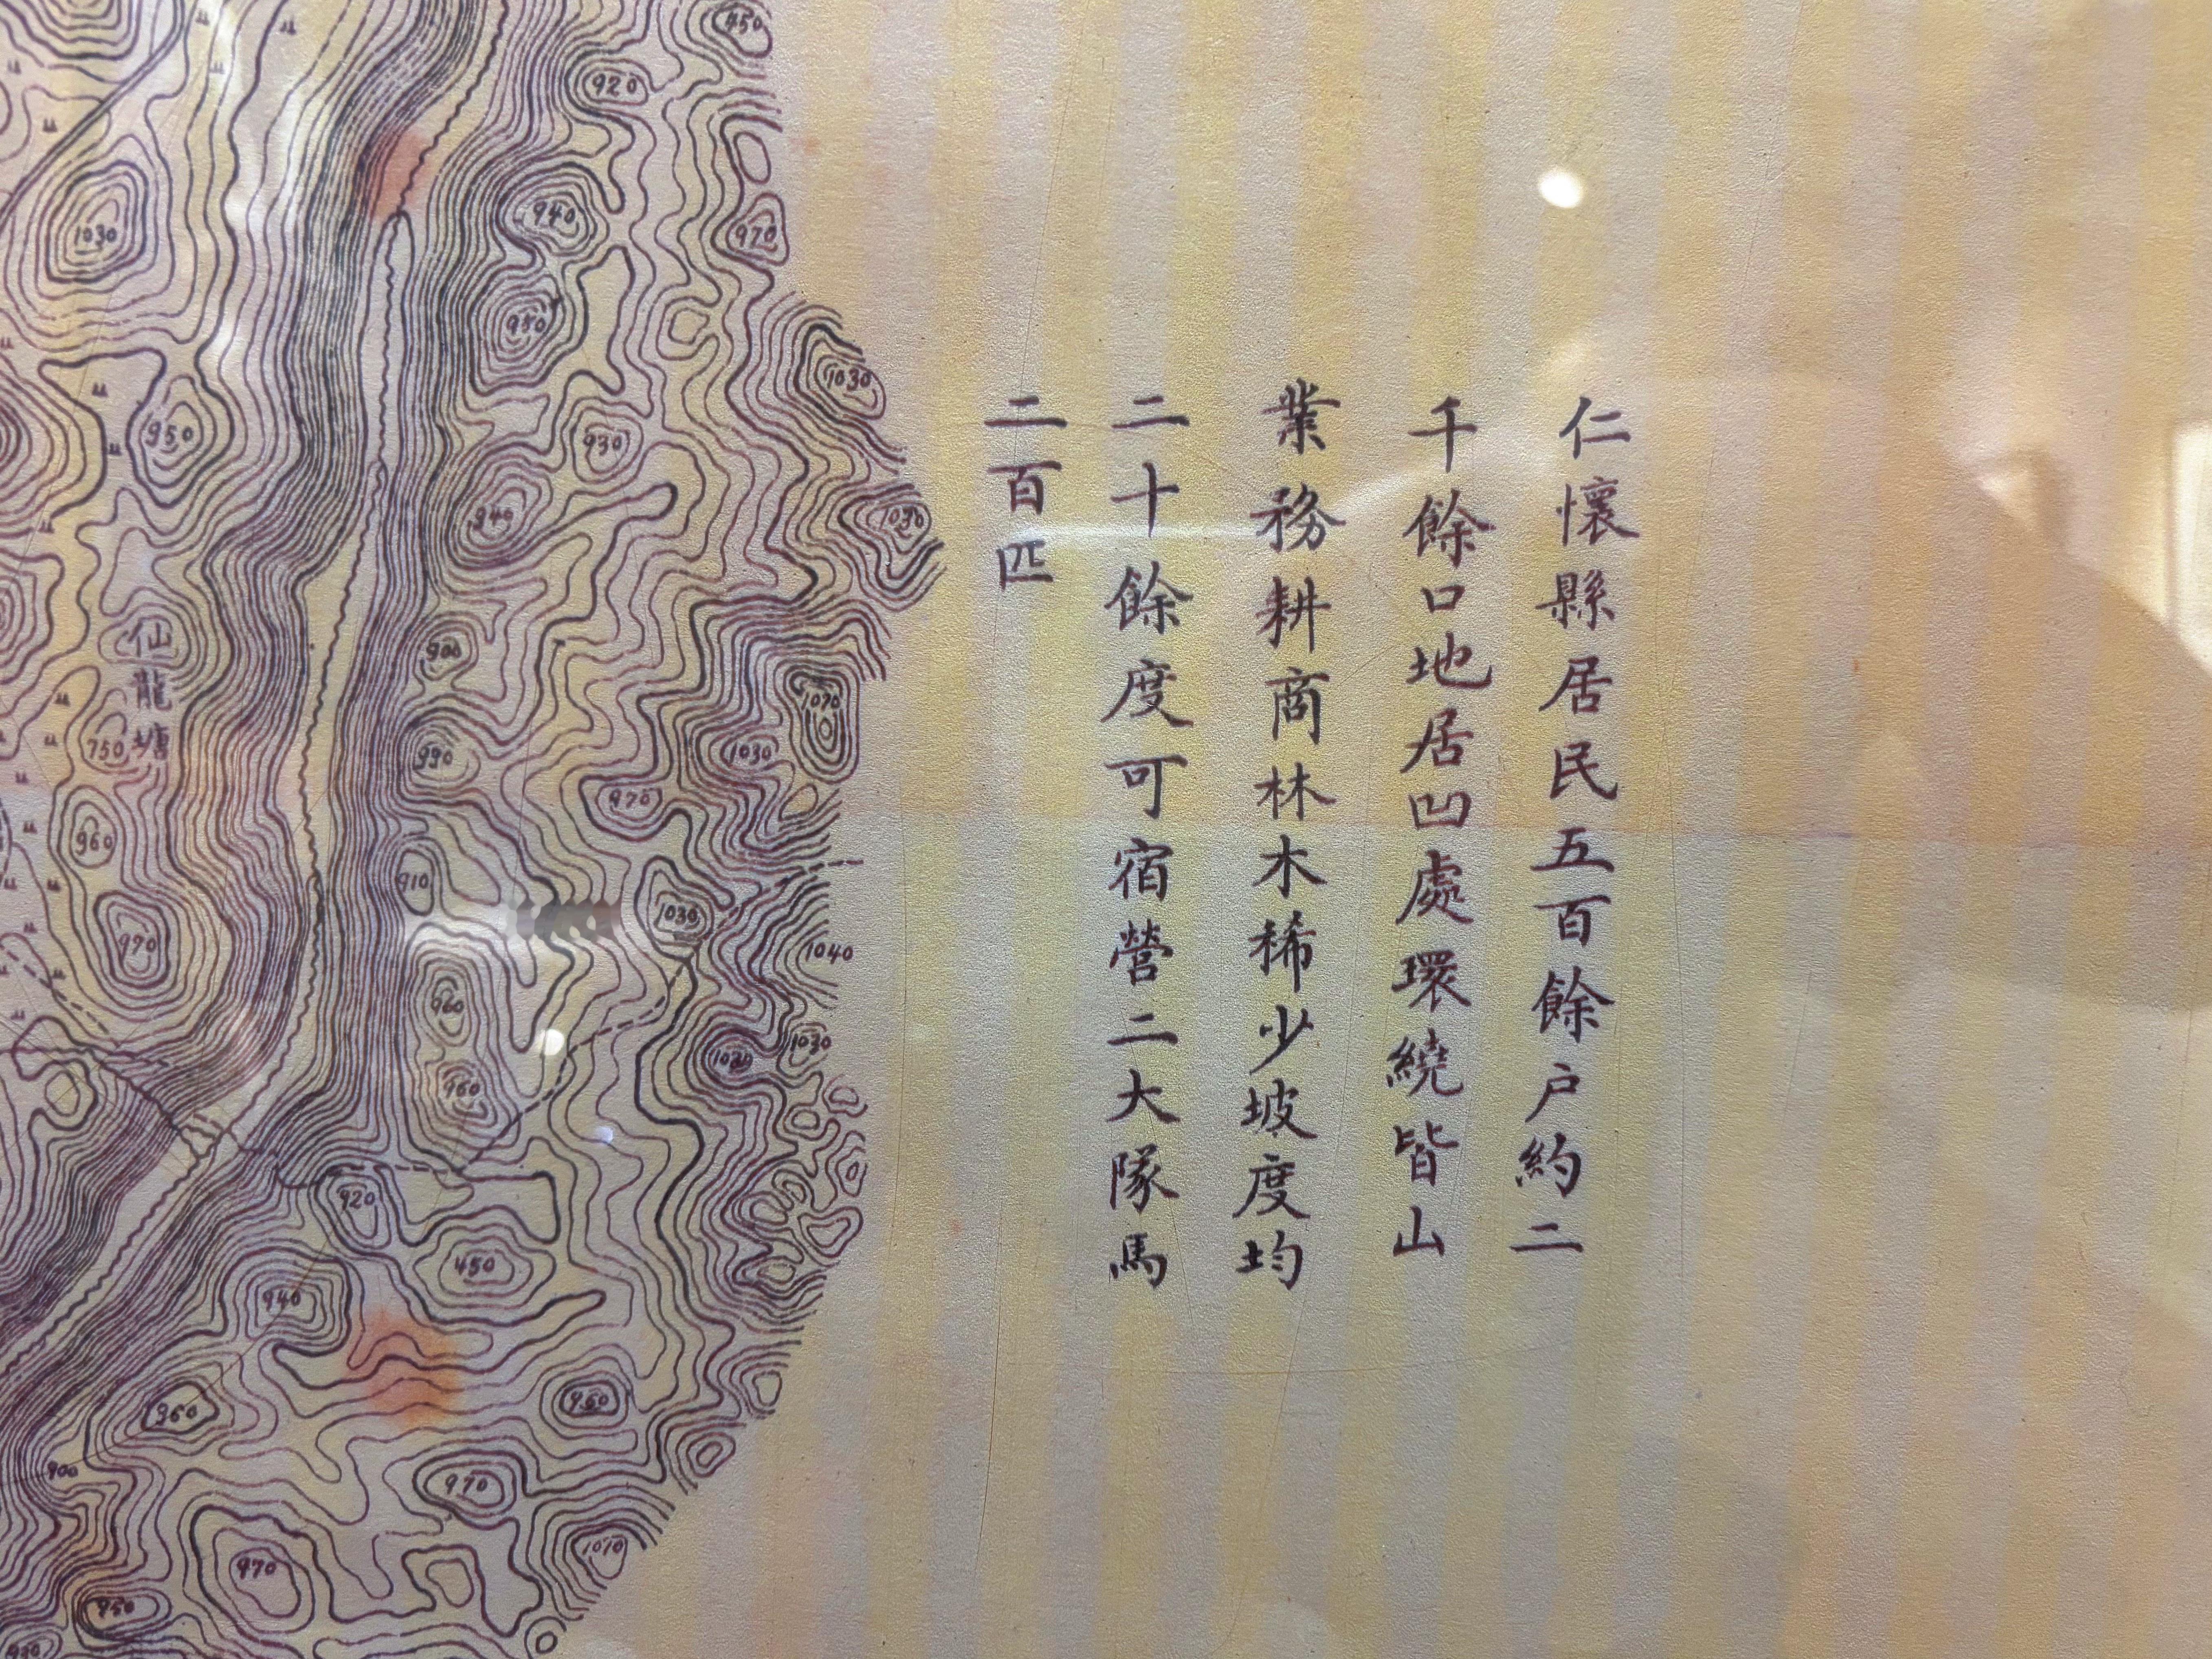 仁懷縣居民五百餘户約二
千餘口地居凹處環繞皆山
業務耕商林木稀少坡度均
二十餘度可宿營二大隊馬
二百匹
450
920
1030
940
970
980
1030
950
930
940
1030
仙龍塘
900
1070
750
990
1030
970
960
910
1030
970
1040
960
1030
1030
960
920
450
940
960
960
900
970
1010
970
950